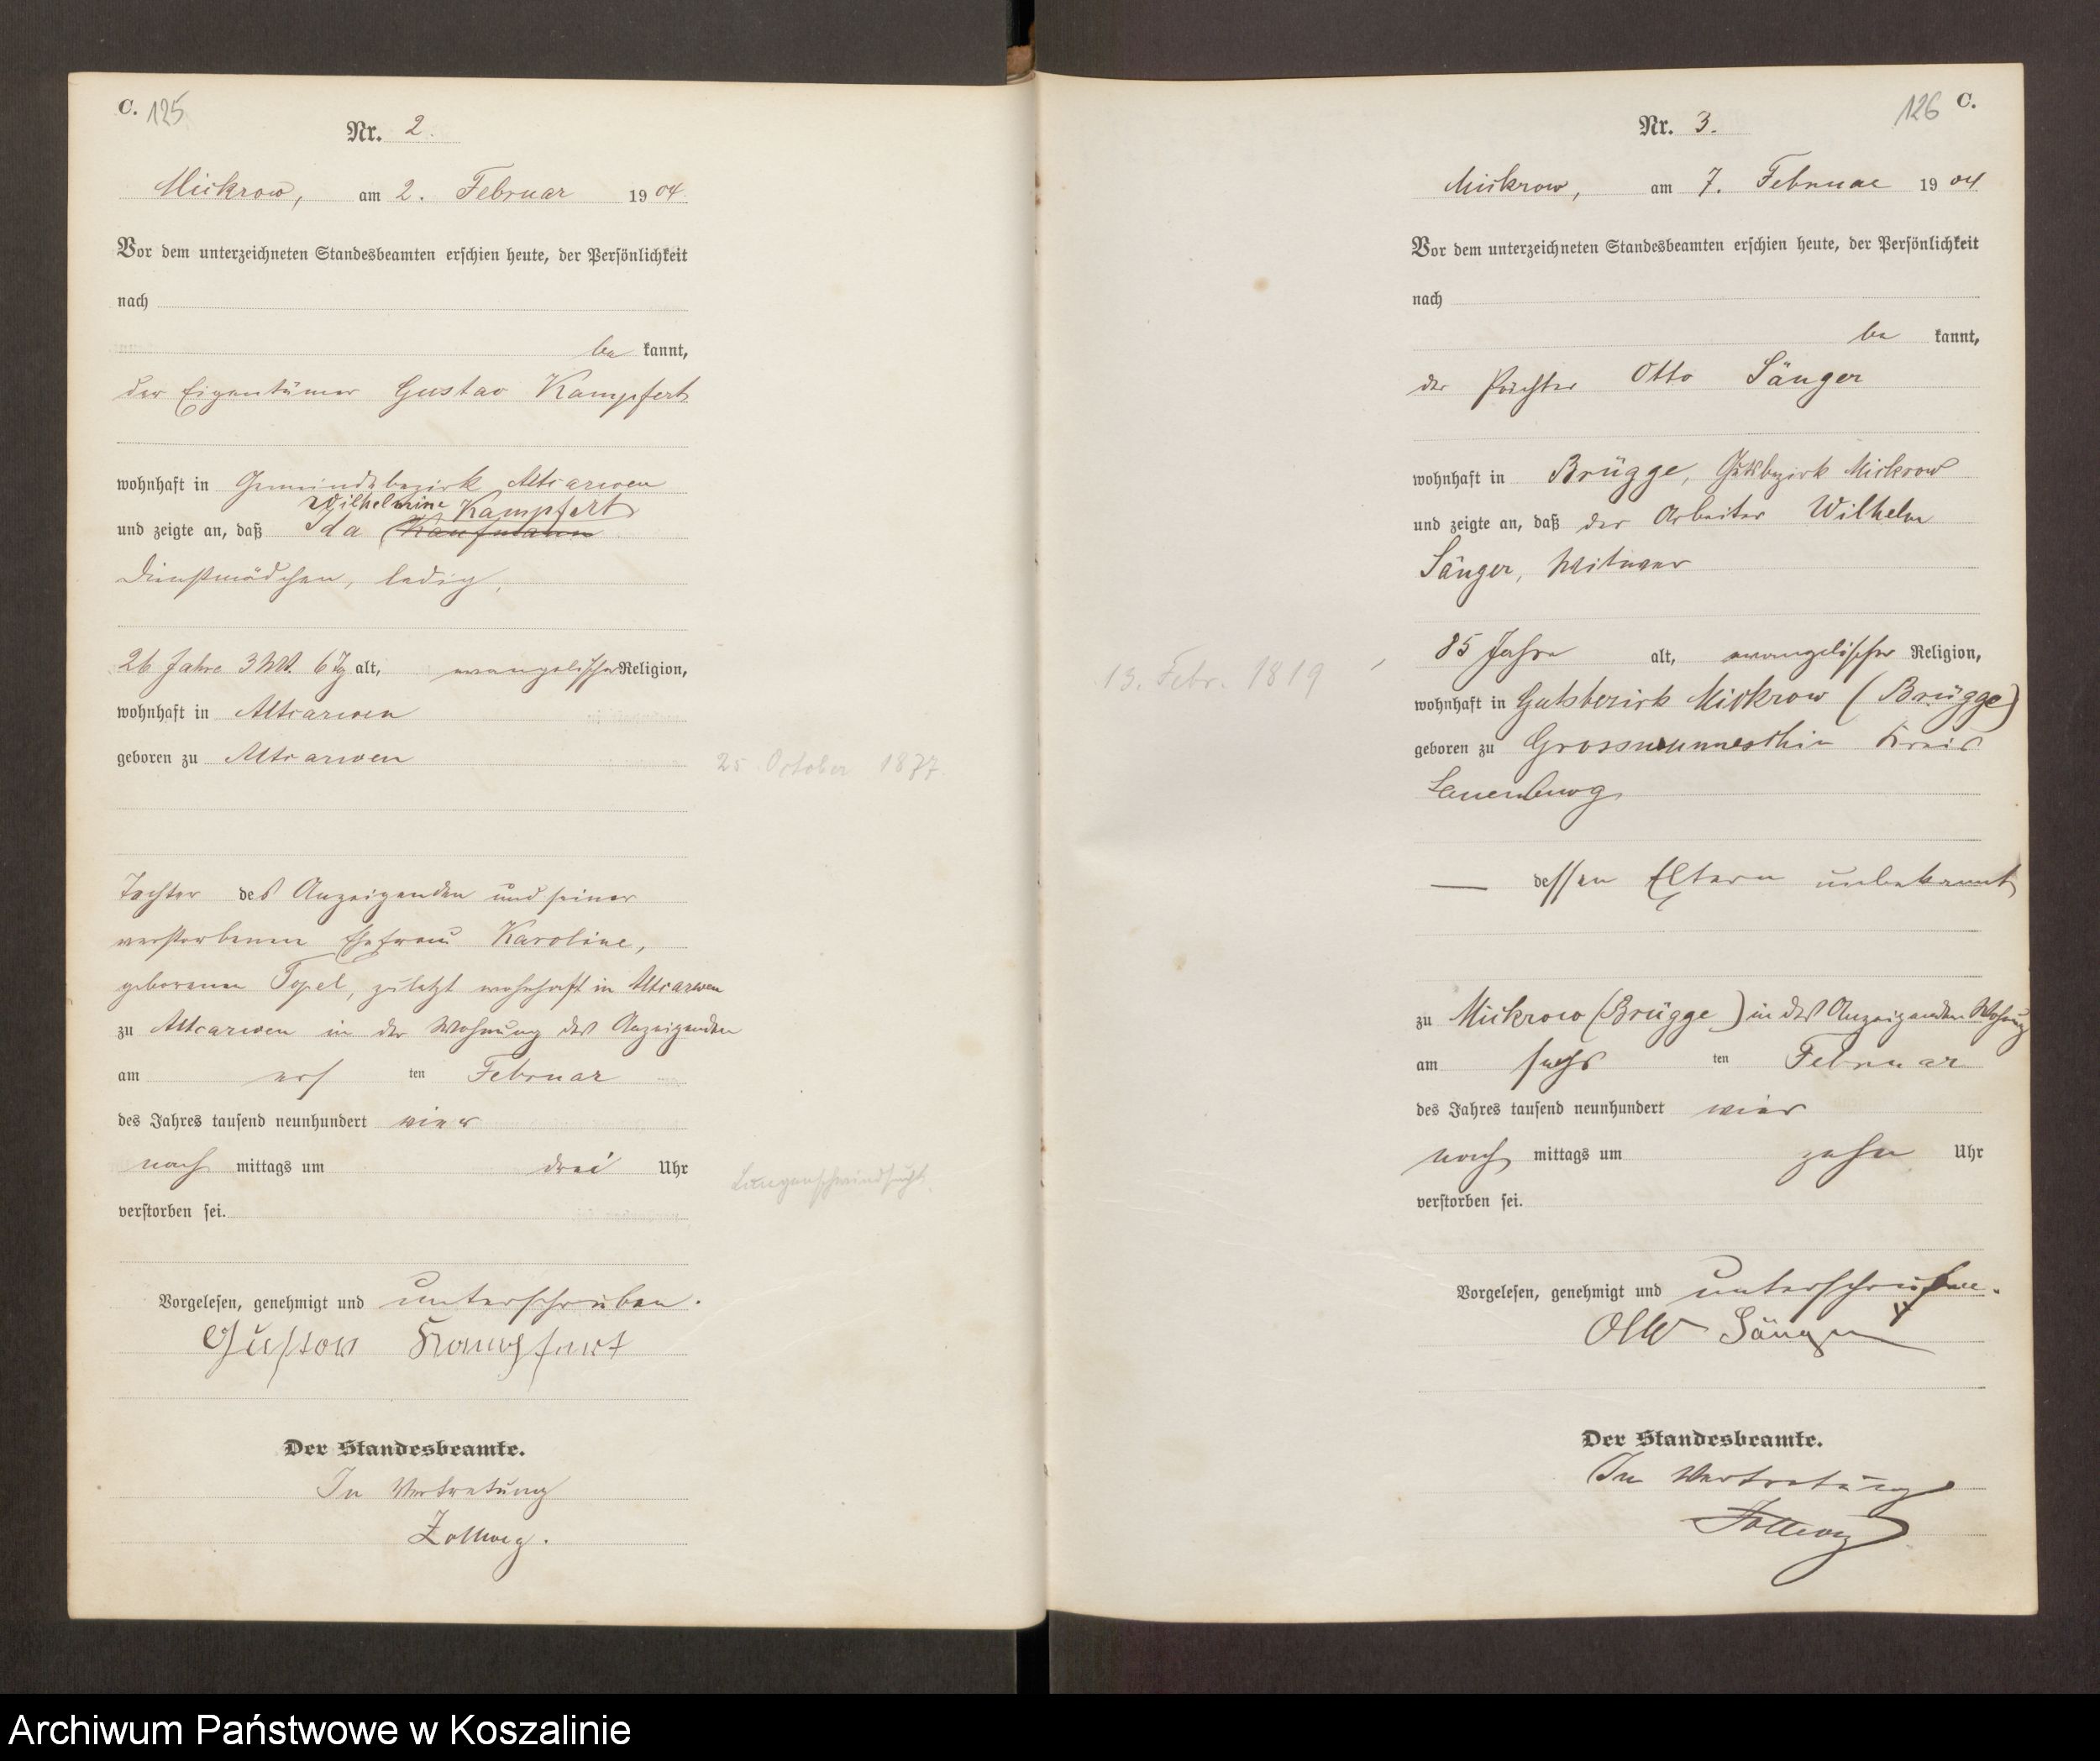 C. 125
Nr. 2.
Mickrow, am 2. Februar 1904
Vor dem unterzeichneten Standesbeamten erschien heute, der Persönlichkeit
nach
be kannt,
der Eigentümer Gustav Kampfert
wohnhaft in Gemeindebezirk Altcarwen
Wilhelmine Kampfert
und zeigte an, daß Ida Kaufmann
Dienstmädchen, ledig,
26 Jahre 3 Mt. 6 Tg alt, evangelischer Religion,
wohnhaft in Altcarwen
geboren zu Altcarwen
25. October 1877.
Tochter des Anzeigenden und seiner
verstorbenen Ehefrau Karoline,
geborenen Topel, zuletzt wohnhaft in Altcarwen
zu Altcarwen in der Wohnung des Anzeigenden
am ers ten Februar
des Jahres tausend neunhundert vier
nach mittags um drei Uhr
Lungenschwindsucht.
verstorben sei.
Vorgelesen, genehmigt und unterschrieben.
Gustav Kampfert
Der Standesbeamte.
In Vertretung
Zollweg.
126 C.
Nr. 3.
Mickrow, am 7. Februar 1904
Vor dem unterzeichneten Standesbeamten erschien heute, der Persönlichkeit
nach
be kannt,
der Pächter Otto Sänger
wohnhaft in Brügge, Gutsbezirk Mickrow
und zeigte an, daß der Arbeiter Wilhelm
Sänger, Witwer
85 Jahre alt, evangelischer Religion,
13. Febr. 1819
wohnhaft in Gutsbezirk Mickrow (Brügge)
geboren zu Grosswunneschin Kreis
Lauenburg
— dessen Eltern unbekannt
zu Mickrow (Brügge) in des Anzeigenden Wohnung
am sechs ten Februar
des Jahres tausend neunhundert vier
nach mittags um zehn Uhr
verstorben sei.
Vorgelesen, genehmigt und unterschrieben.
Otto Sänger
Der Standesbeamte.
In Vertretung
Zollweg
Archiwum Państwowe w Koszalinie